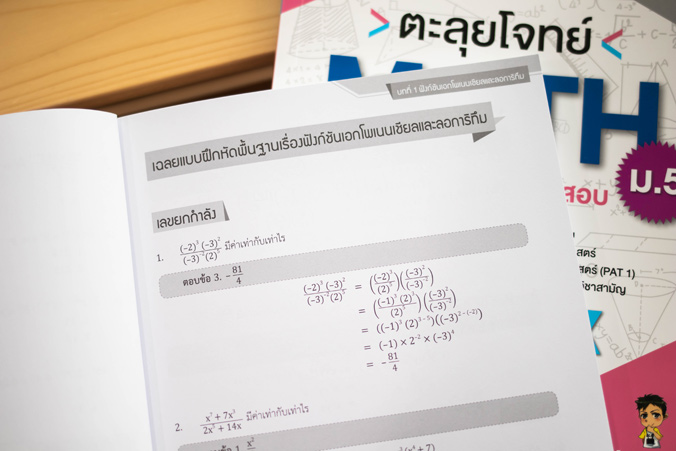 > ตะลุยโจทย์ <
บทที่ 1 ฟังก์ชันเอกโพเนนเชียลและลอการิทึม
TH
ม.5
สอบ
เฉลยแบบฝึกหัดพื้นฐานเรื่องฟังก์ชันเอกโพเนนเชียลและลอการิทึม
เลขยกกำลัง
1. (-2)³ (-3)² / (-3)⁻²(2)⁵ มีค่าเท่ากับเท่าไร
ตอบข้อ 3. -81/4
(-2)³ (-3)² / (-3)⁻²(2)⁵ = ((-2)³/(2)⁵)((-3)²/(-3)⁻²)
= ((-1)³ (2)³/(2)⁵)((-3)²/(-3)⁻²)
= ((-1)³ (2)³⁻⁵)((-3)²⁻⁽⁻²⁾)
= (-1) × 2⁻² × (-3)⁴
= -81/4
(PAT 1)
วิชาสามัญ
2. มีค่าเท่ากับเท่าไร